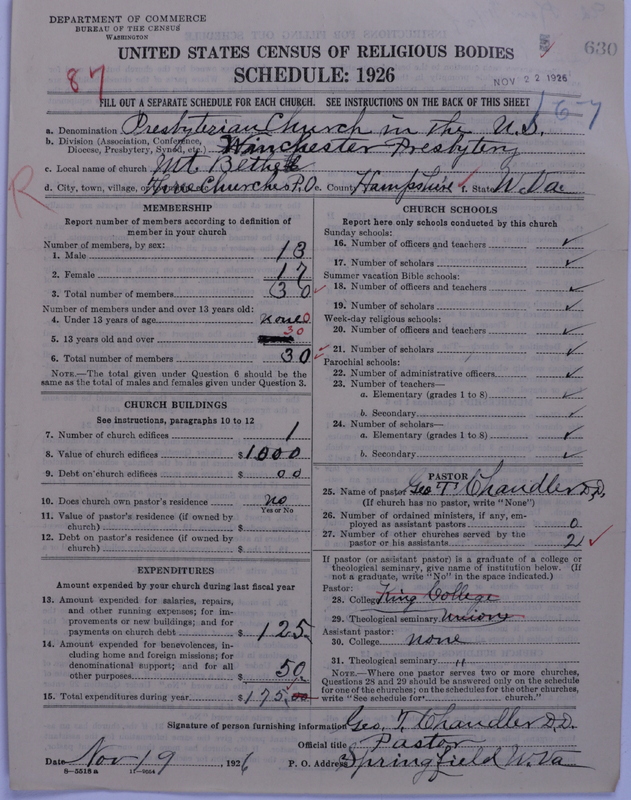 DEPARTMENT OF COMMERCE
BUREAU OF THE CENSUS
WASHINGTON
630
UNITED STATES CENSUS OF RELIGIOUS BODIES
SCHEDULE: 1926
87
NOV 22 1926
FILL OUT A SEPARATE SCHEDULE FOR EACH CHURCH. SEE INSTRUCTIONS ON THE BACK OF THIS SHEET
16-7
a. Denomination Presbyterian Church in the U.S.
b. Division (Association, Conference, Diocese, Presbytery, Synod, etc.) Winchester Presbytery
c. Local name of church Mt Bethel
d. City, town, village, Three Churches P.O. e. County Hampshire f. State W.Va
R
MEMBERSHIP
Report number of members according to definition of
member in your church
Number of members, by sex:
1. Male 13
2. Female 17
3. Total number of members 30
Number of members under and over 13 years old:
4. Under 13 years of age none 0
5. 13 years old and over 30
6. Total number of members 30
NOTE.—The total given under Question 6 should be the
same as the total of males and females given under Question 3.
CHURCH BUILDINGS
See instructions, paragraphs 10 to 12
7. Number of church edifices 1
8. Value of church edifices $1000
9. Debt on church edifices $ 00
10. Does church own pastor's residence no
Yes or No
11. Value of pastor's residence (if owned by
church) $
12. Debt on pastor's residence (if owned by
church) $
EXPENDITURES
Amount expended by your church during last fiscal year
13. Amount expended for salaries, repairs,
and other running expenses; for im-
provements or new buildings; and for
payments on church debt $125
14. Amount expended for benevolences, in-
cluding home and foreign missions; for
denominational support; and for all
other purposes $50
15. Total expenditures during year $175.00
CHURCH SCHOOLS
Report here only schools conducted by this church
Sunday schools:
16. Number of officers and teachers ✓
17. Number of scholars ✓
Summer vacation Bible schools:
18. Number of officers and teachers ✓
19. Number of scholars ✓
Week-day religious schools:
20. Number of officers and teachers ✓
21. Number of scholars ✓
Parochial schools:
22. Number of administrative officers ✓
23. Number of teachers—
a. Elementary (grades 1 to 8) ✓
b. Secondary ✓
24. Number of scholars—
a. Elementary (grades 1 to 8) ✓
b. Secondary ✓
PASTOR
25. Name of pastor Geo T. Chandler D.D.
(If church has no pastor, write "None")
26. Number of ordained ministers, if any, em-
ployed as assistant pastors 0
27. Number of other churches served by the
pastor or his assistants 2
If pastor (or assistant pastor) is a graduate of a college or
theological seminary, give name of institution below. (If
not a graduate, write "No" in the space indicated.)
Pastor:
28. College King College
29. Theological seminary Union
Assistant pastor:
30. College none
31. Theological seminary "
NOTE.—Where one pastor serves two or more churches,
Questions 28 and 29 should be answered only on the schedule
for one of the churches; on the schedules for the other churches,
write "See schedule for church."
Signature of person furnishing information Geo. T. Chandler D.D.
Official title Pastor
Date Nov 19, 1926 P. O. Address Springfield W.Va
8—5515 a 11—9554